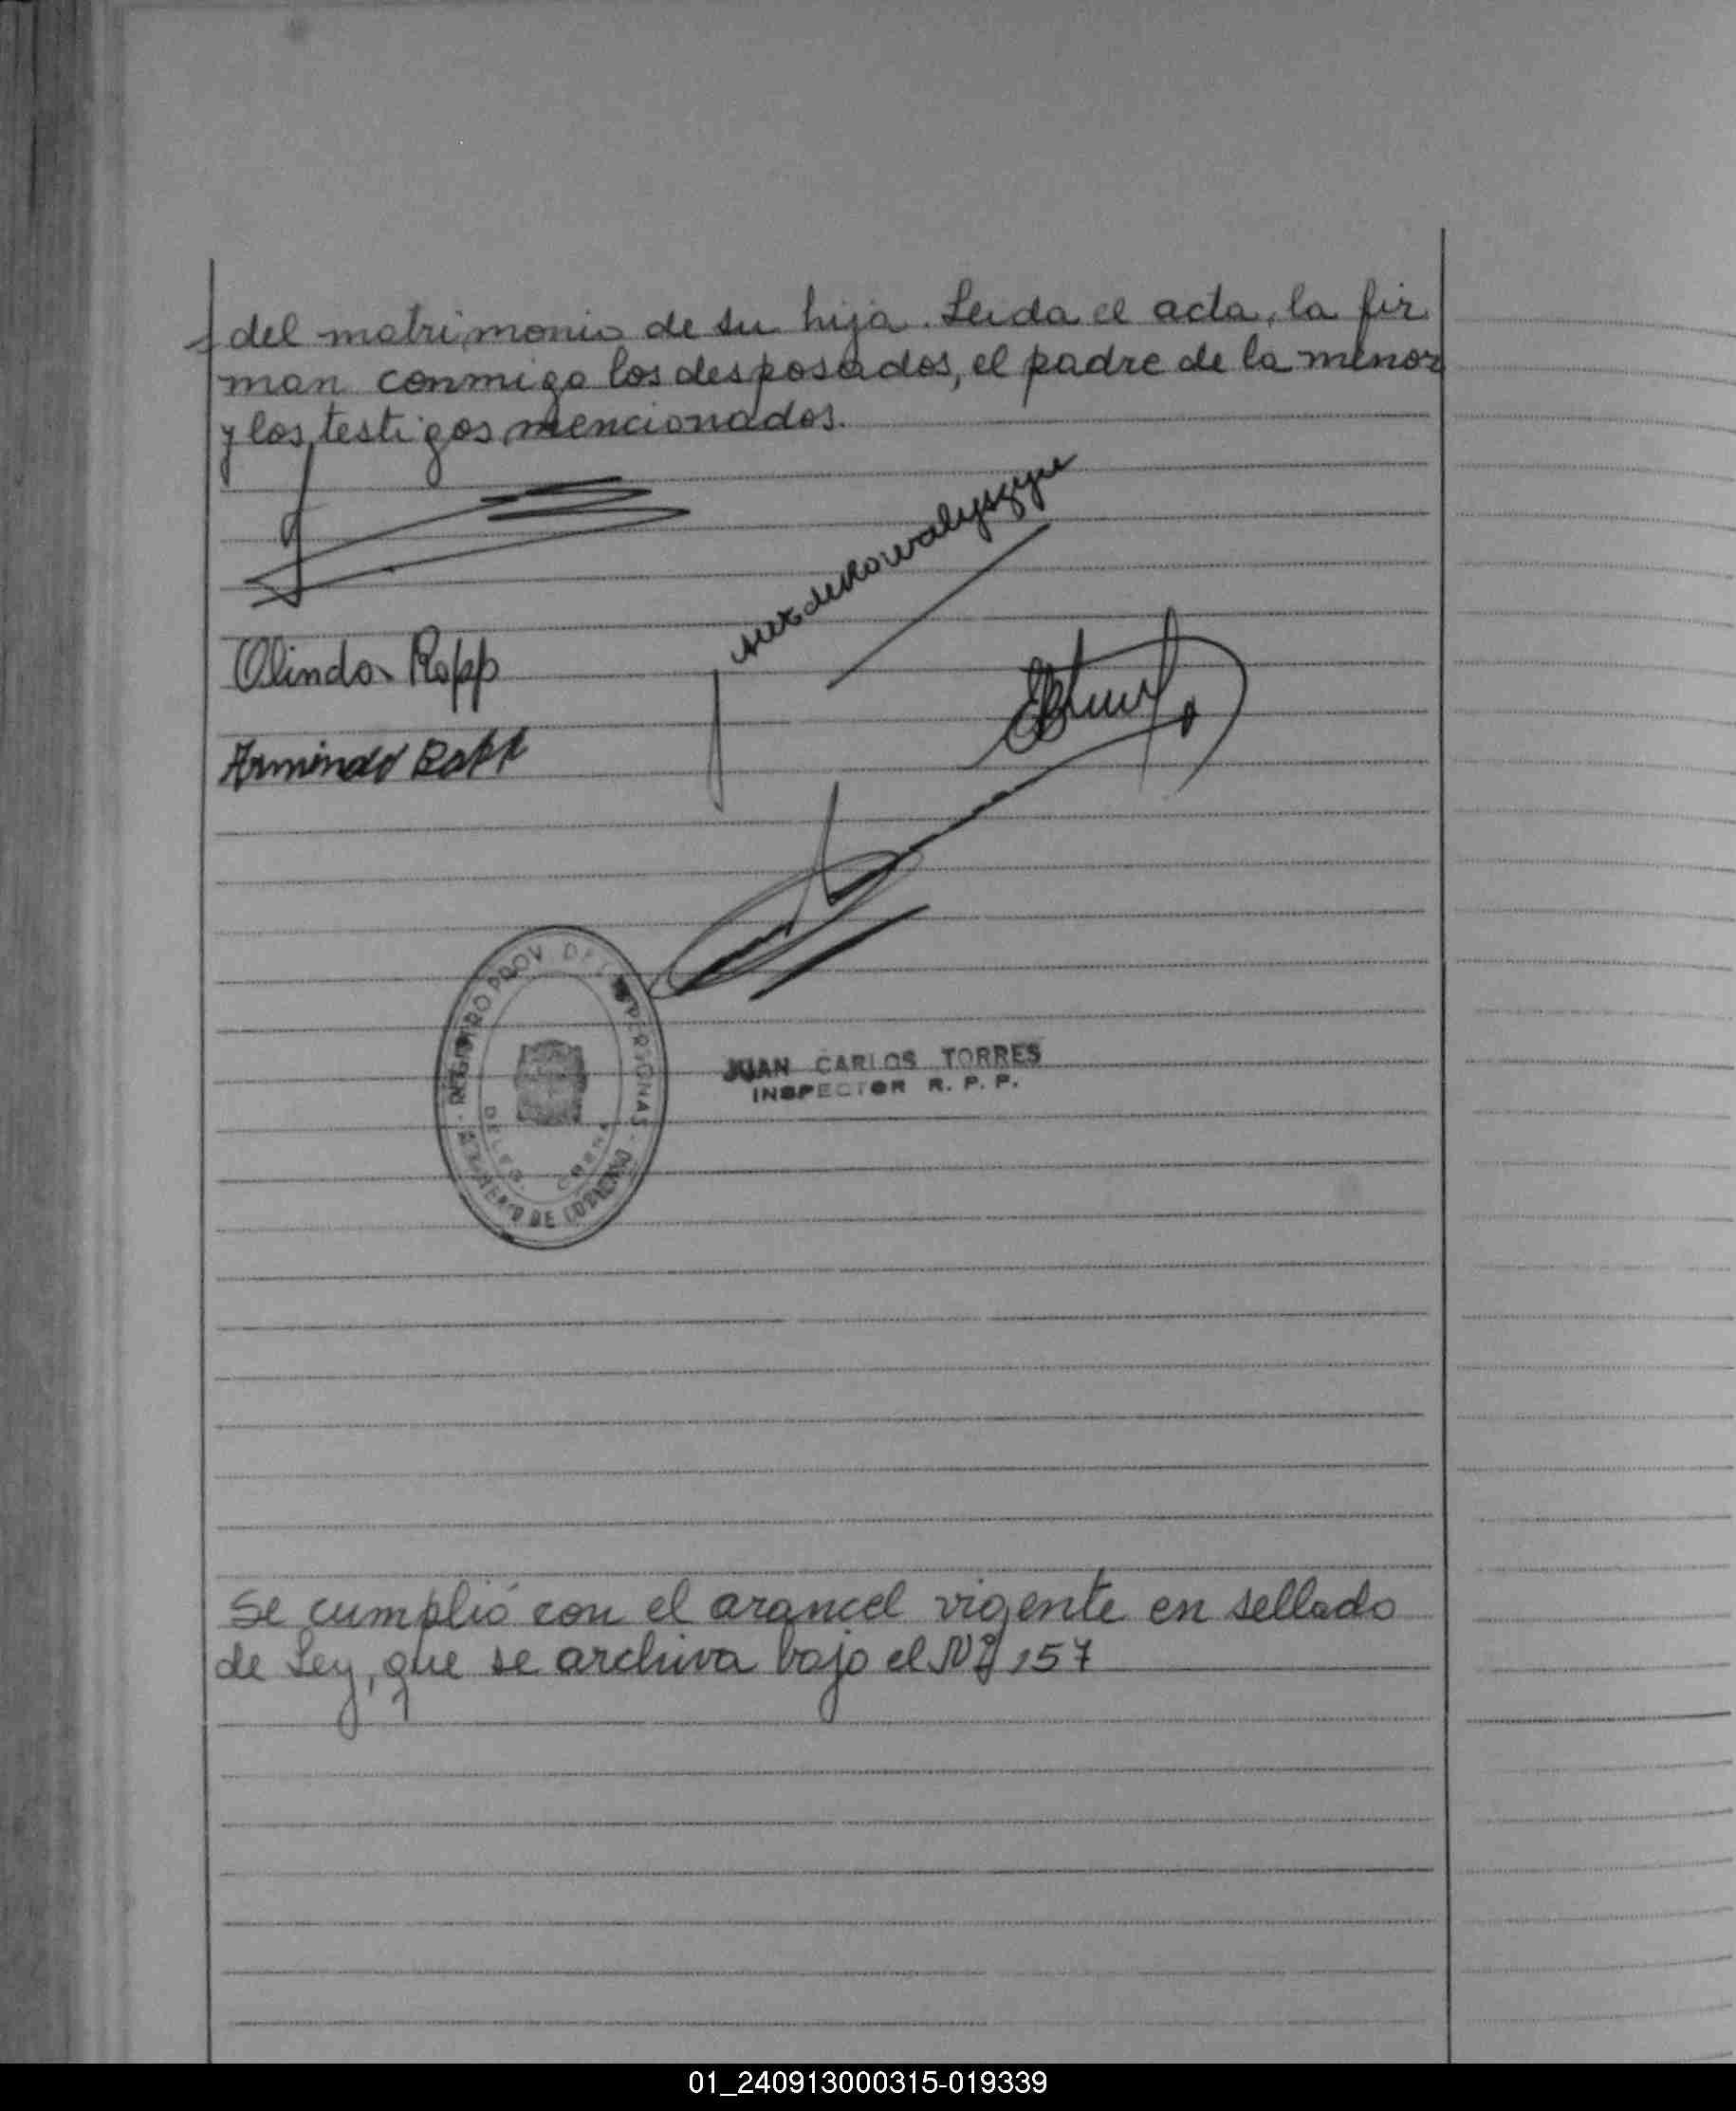 del matrimonio de su hija. Leida el acta, la fir
man conmigo los desposados, el padre de la menor
y los testigos mencionados.
Olinda Ropp
Armindo Ropp
REGISTRO PROV. DE LAS PERSONAS
DELEG.
JUAN CARLOS TORRES
INSPECTOR R. P. P.
Se cumplió con el arancel vigente en sellado
de Ley, que se archiva bajo el Nº 157
01_240913000315-019339